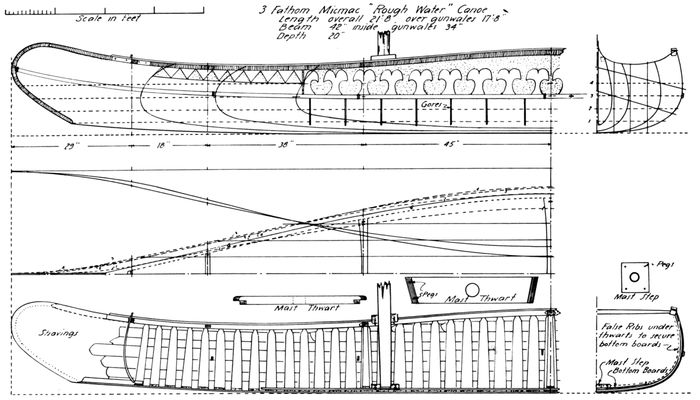 3 Fathom Micmac "Rough Water" Canoe
Length overall 21'8" over gunwales 17'8"
Beam 42" inside gunwales 34"
Depth 20"
Scale in Feet
Gores
29"
18"
38"
45"
Pegs
Mast Step
Mast Thwart
Pegs
Mast Thwart
Shavings
False Ribs under
thwarts to secure
bottom boards
Mast Step
Bottom Boards